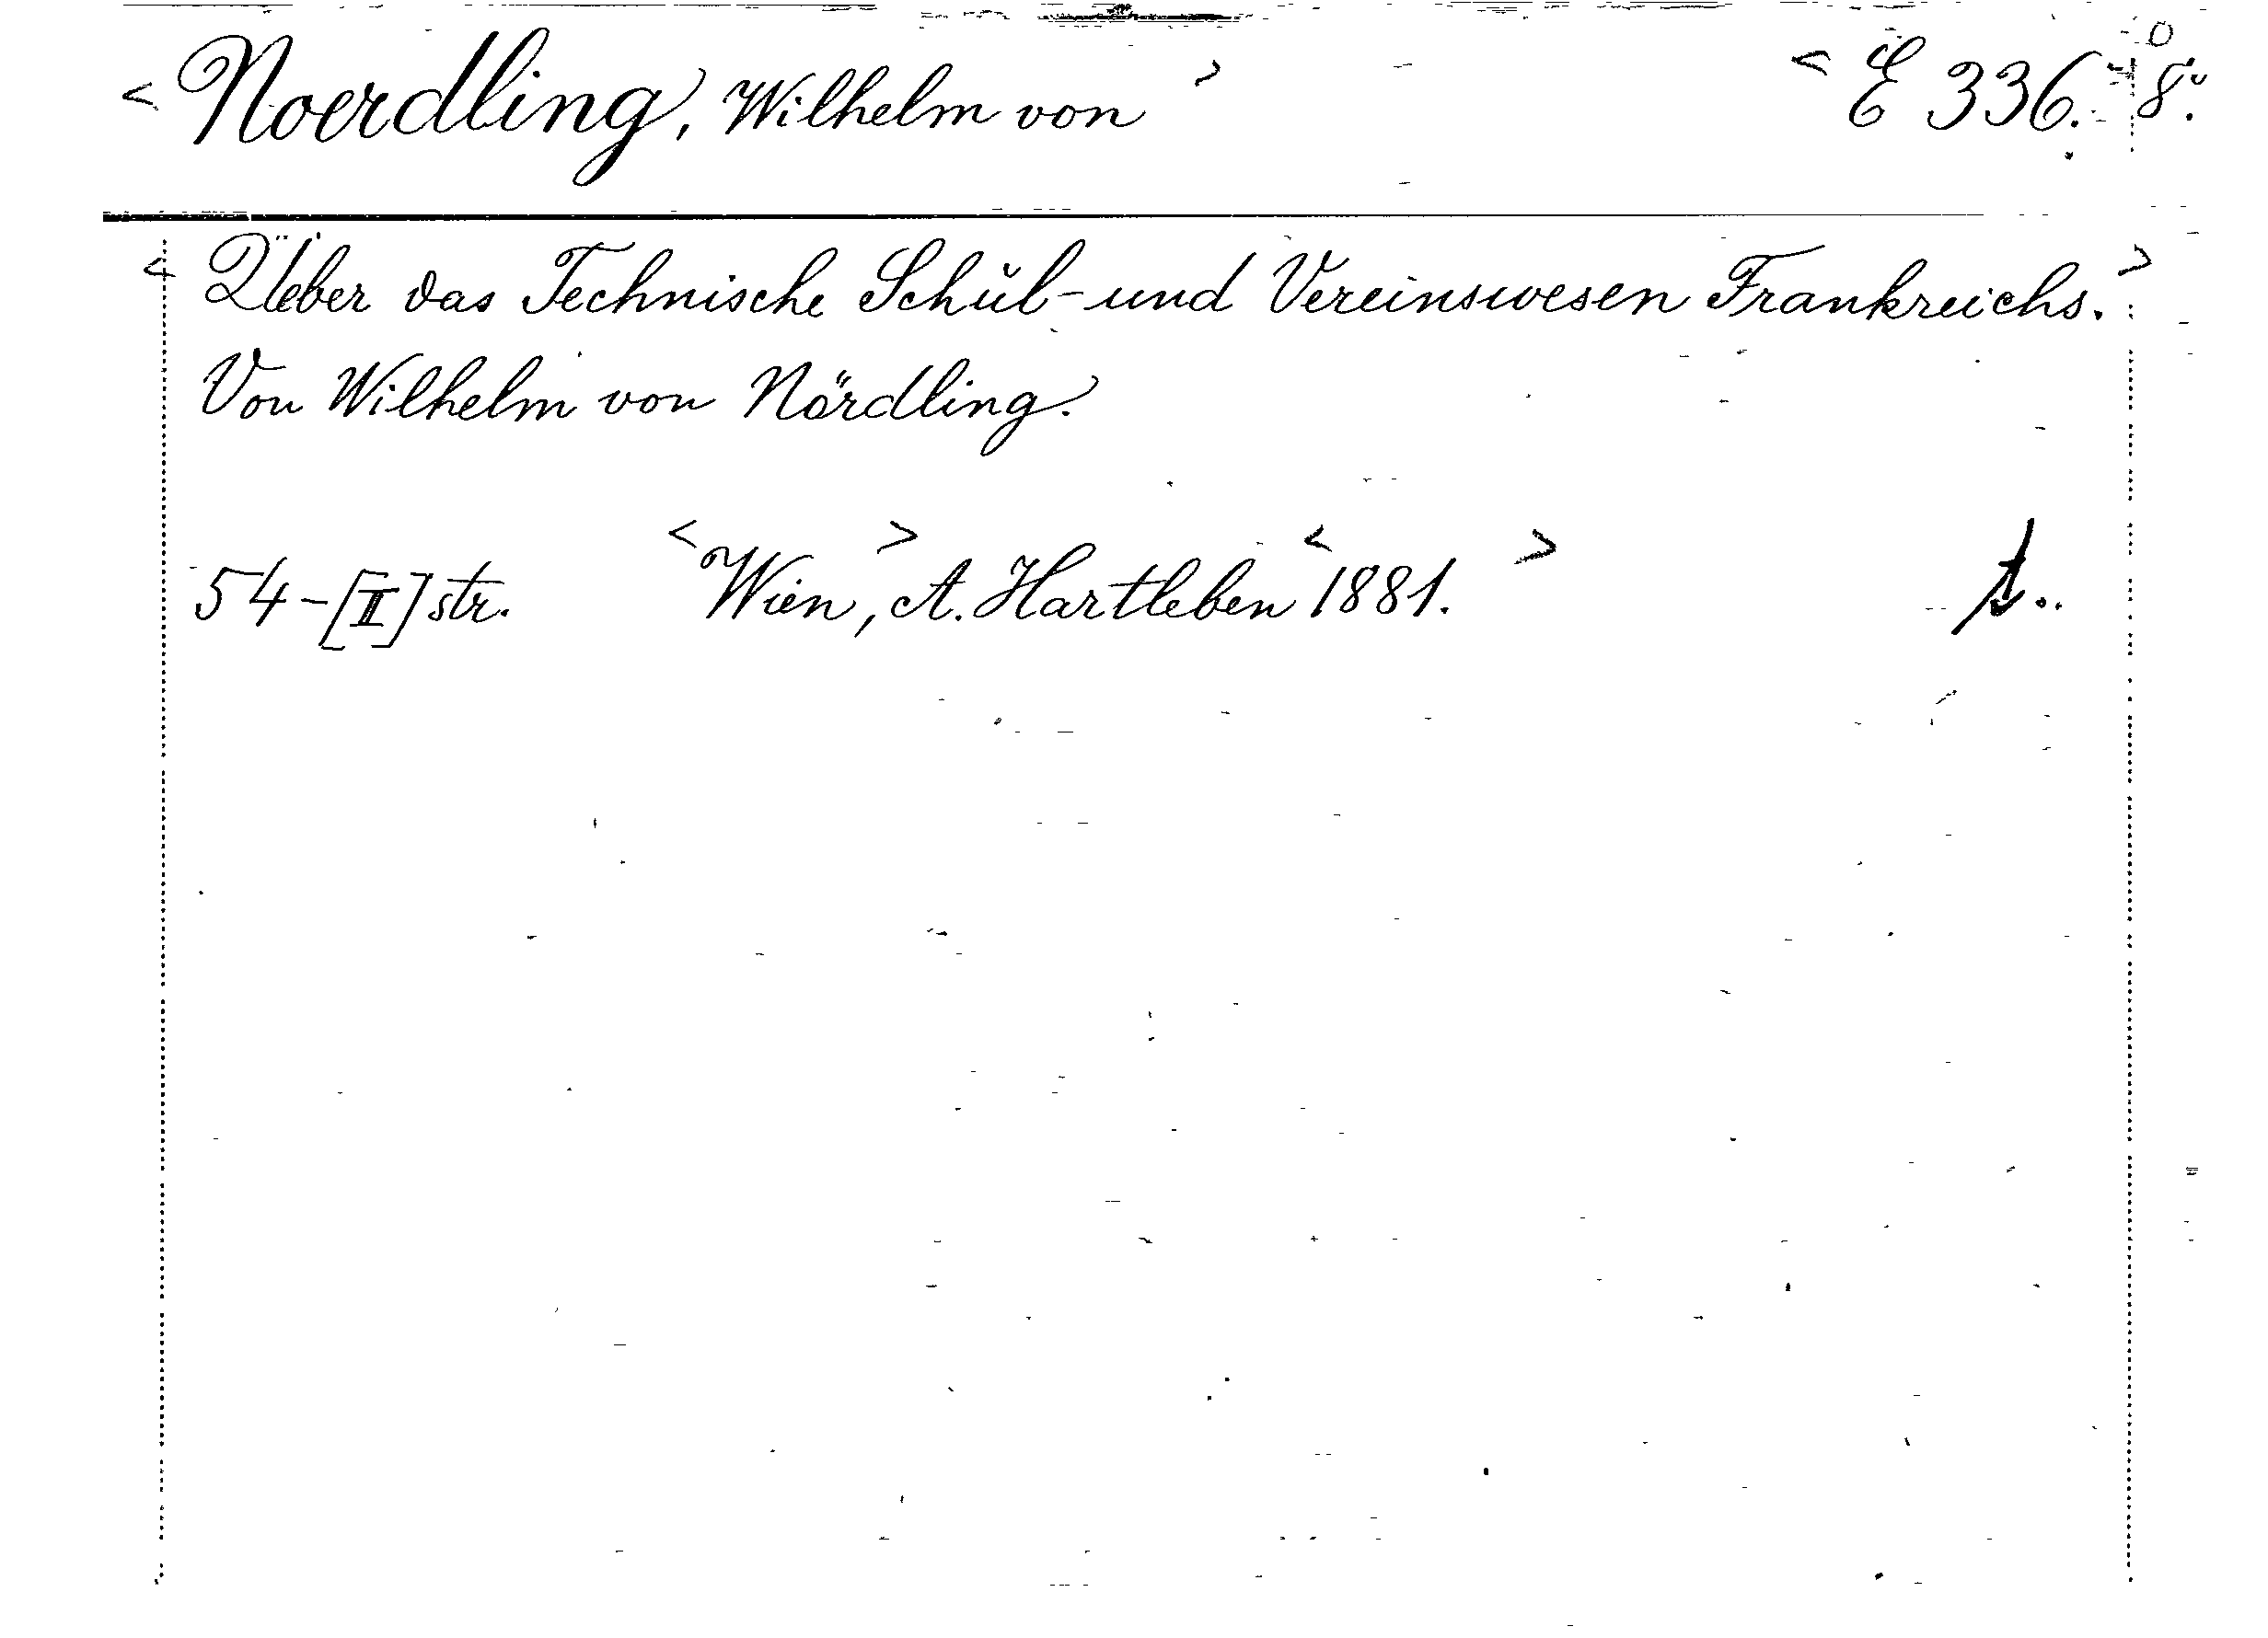 < Noerdling, Wilhelm von > < E 336. 8°.
< Ueber das Technische Schŭl- und Vereinswesen Frankreichs. >
Von Wilhelm von Nördling.
54-[II] str. <Wien,> A. Hartleben <1881.>